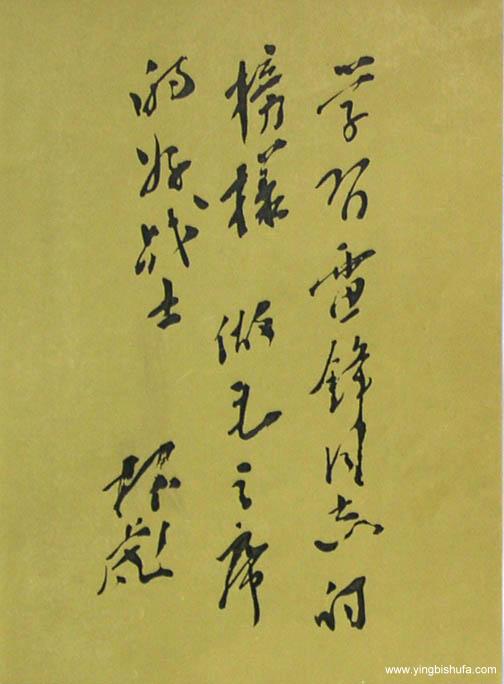 学習雷鋒同志的
榜樣 做毛主席
的好战士
林彪
www.yingbishufa.com